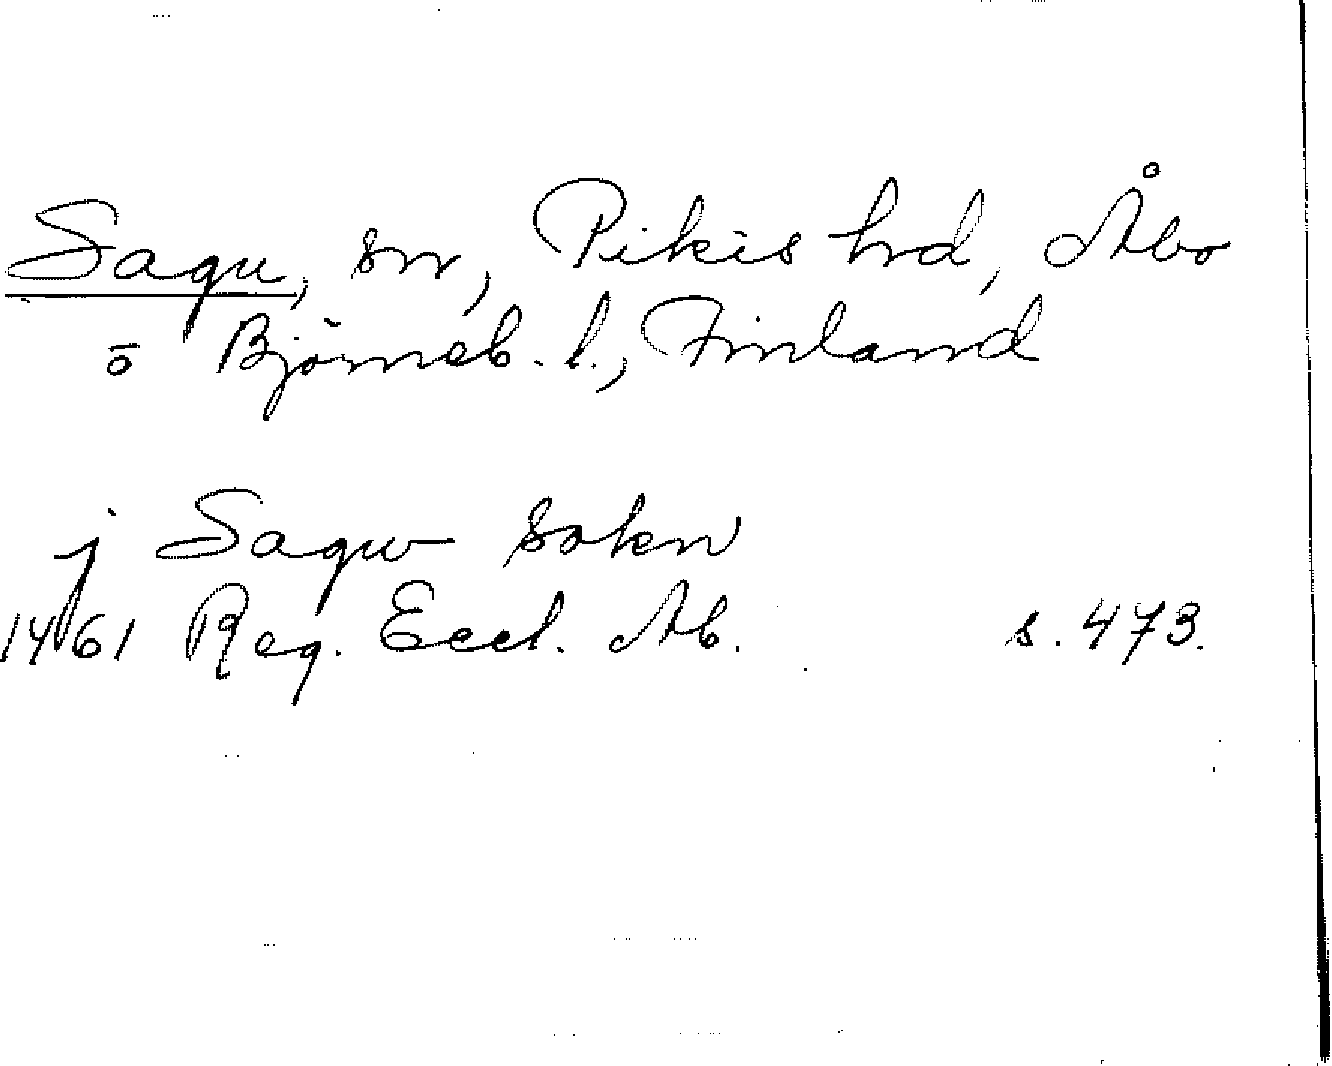 Sagu, sn, Pikis hd, Åbo
o Björneb. l., Finland
j Sagw sokn
1461 Reg. Eccl. Ab. s. 473.